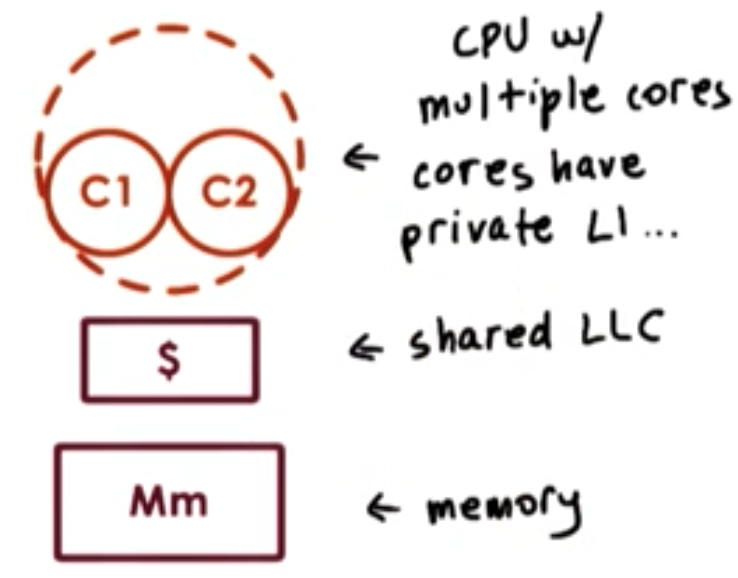 CPU w/
multiple cores
C1 C2
cores have
private L1...
$
shared LLC
Mm
memory